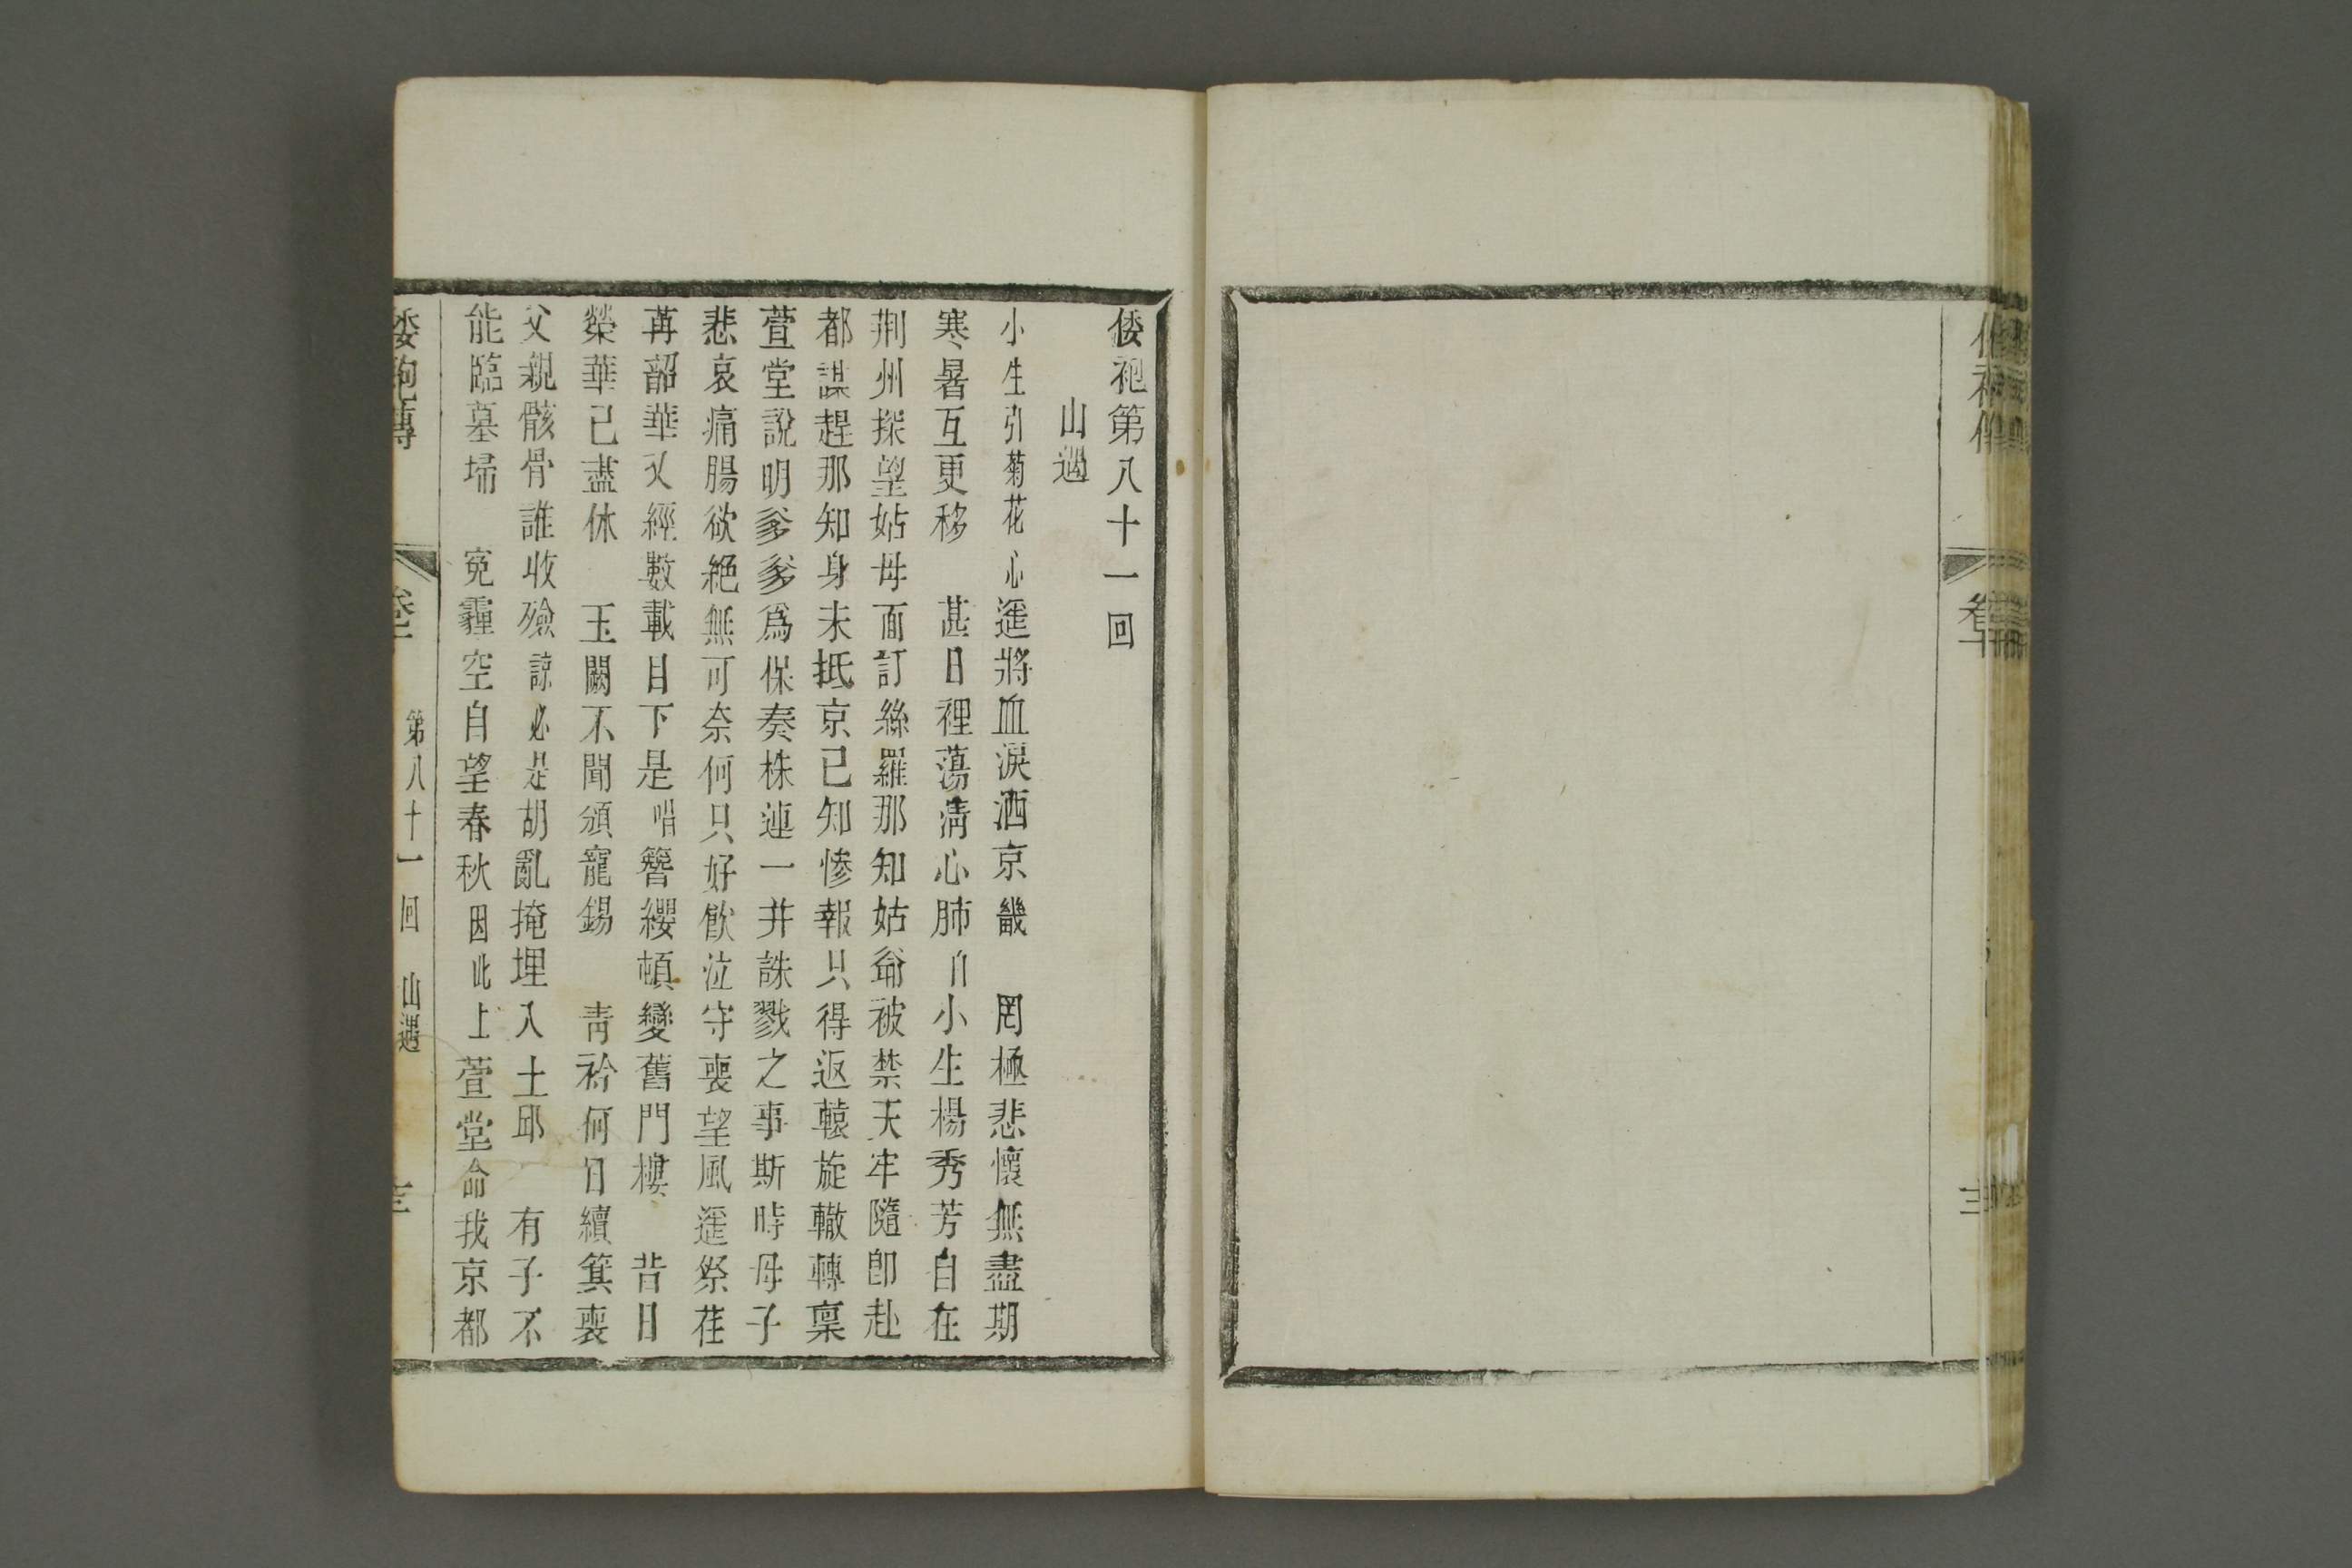 倭袍第八十一回
山遇
小生引菊花心遥將血淚洒京畿　罔極悲懷無盡期
寒暑互更移　甚日裡蕩淸心肺白小生楊秀芳自在
荆州探望姑母面訂絲羅那知姑爺被禁天牢隨卽赴
都謀趕那知身未抵京已知慘報只得返轅旋轍轉稟
萱堂說明爹爹爲保奏株連一幷誅戮之事斯時母子
悲哀痛腸欲絕無可奈何只好飮泣守喪望風遥祭荏
苒韶華又經數載目下是唱簪纓頓變舊門樓　昔日
榮華已盡休　玉闕不聞頒寵錫　靑衿何日續箕裘
父親骸骨誰收殮諒必是胡亂掩埋入土邱　有子不
能臨墓埽　寃霾空自望春秋因此上萱堂命我京都
倭袍傳
第八十一回　山遇